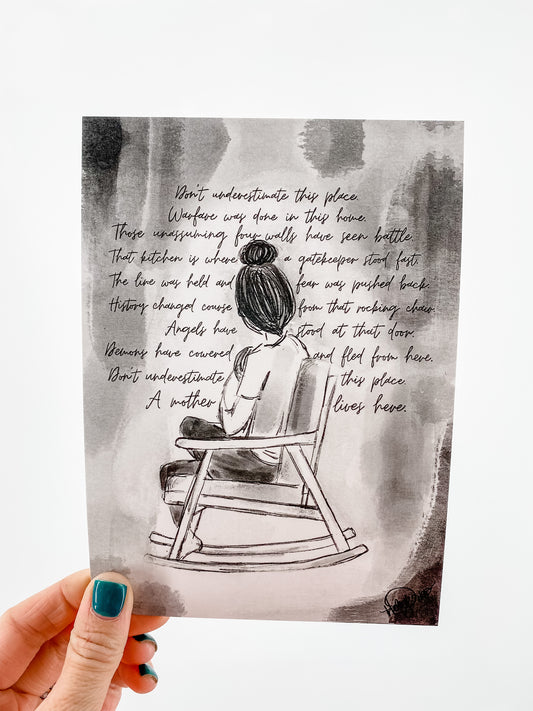 Don't underestimate this place.
Warfare was done in this home.
Those unassuming four walls have seen battle.
That kitchen is where a gatekeeper stood fast.
The line was held and fear was pushed back.
History changed course from that rocking chair.
Angels have stood at that door.
Demons have cowered and fled from here.
Don't underestimate this place.
A mother lives here.